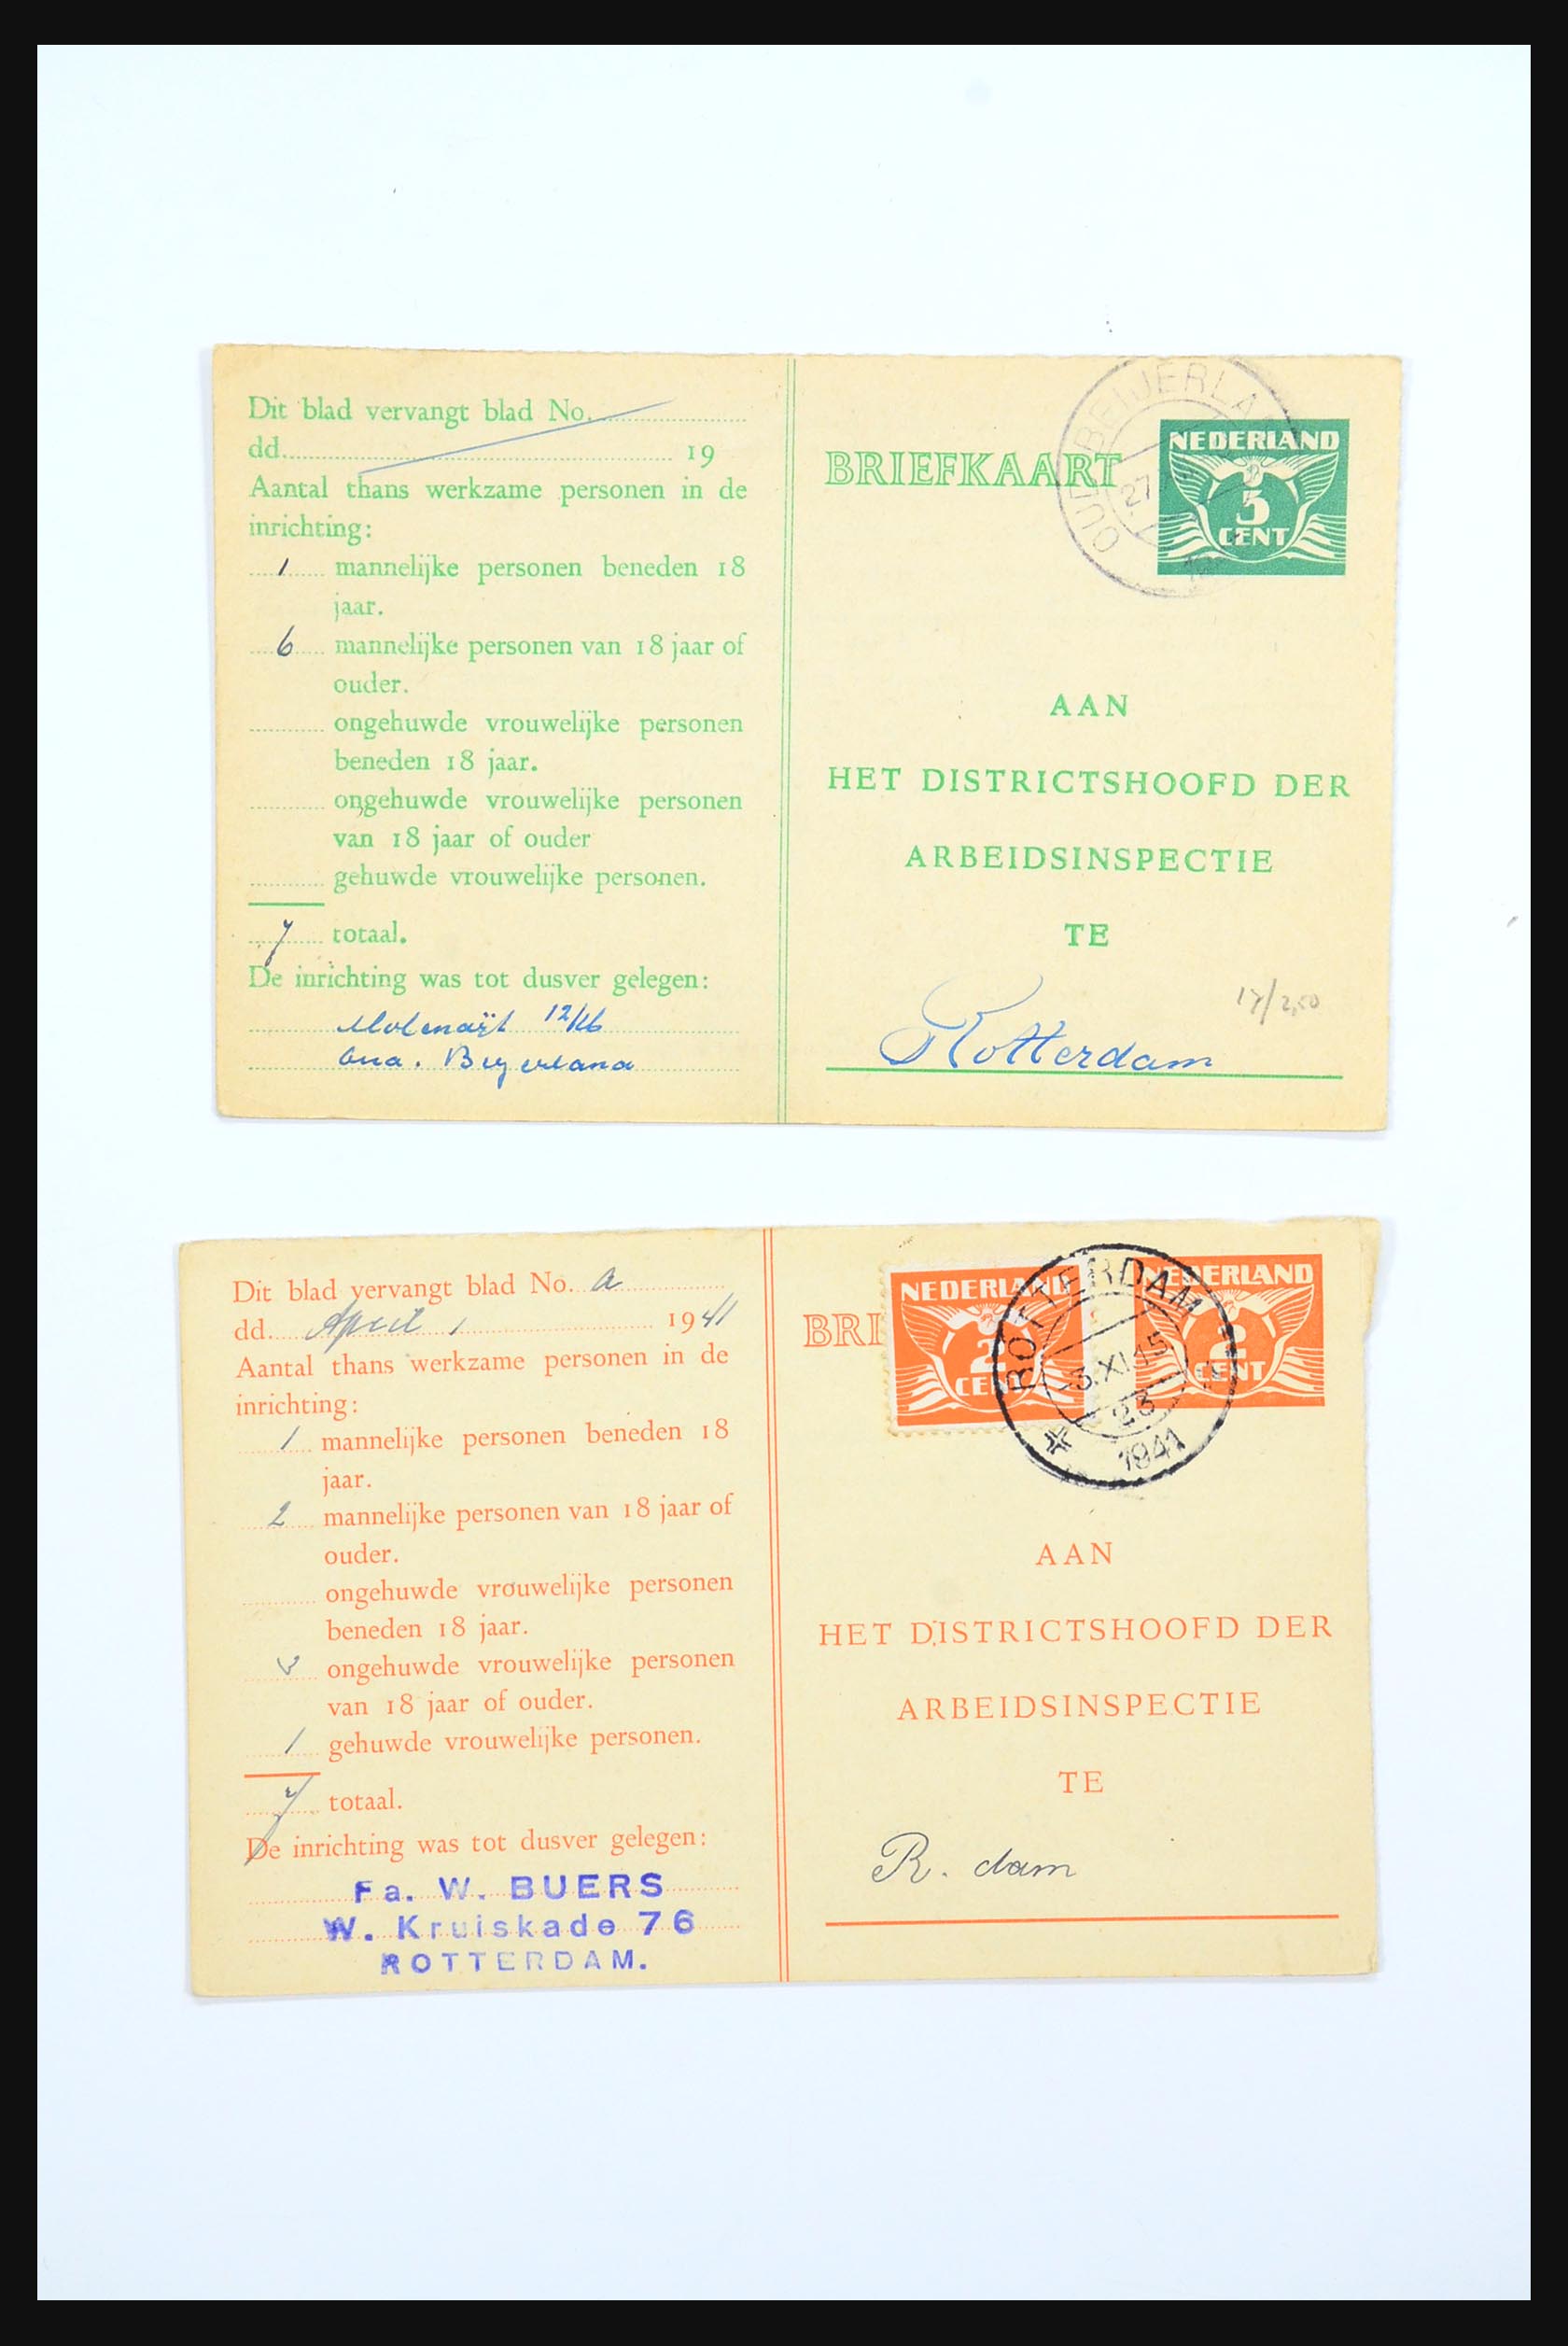 Dit blad vervangt blad No.
dd. 19
Aantal thans werkzame personen in de
inrichting:
1 mannelijke personen beneden 18
jaar.
6 mannelijke personen van 18 jaar of
ouder.
ongehuwde vrouwelijke personen
beneden 18 jaar.
ongehuwde vrouwelijke personen
van 18 jaar of ouder
gehuwde vrouwelijke personen.
7 totaal.
De inrichting was tot dusver gelegen:
12/16
BRIEFKAART
OUD BEIJERLA
27
NEDERLAND
5
CENT
AAN
HET DISTRICTSHOOFD DER
ARBEIDSINSPECTIE
TE
17/2,50
Rotterdam
Dit blad vervangt blad No. a
dd. April 1941
Aantal thans werkzame personen in de
inrichting:
1 mannelijke personen beneden 18
jaar.
2 mannelijke personen van 18 jaar of
ouder.
ongehuwde vrouwelijke personen
beneden 18 jaar.
3 ongehuwde vrouwelijke personen
van 18 jaar of ouder.
1 gehuwde vrouwelijke personen.
7 totaal.
De inrichting was tot dusver gelegen:
Fa. W. BUERS
W. Kruiskade 76
ROTTERDAM.
BRI
NEDERLAND
2
CENT
NEDERLAND
2
CENT
ROTTERDAM
3.XI.15
23
1941
AAN
HET DISTRICTSHOOFD DER
ARBEIDSINSPECTIE
TE
R. dam